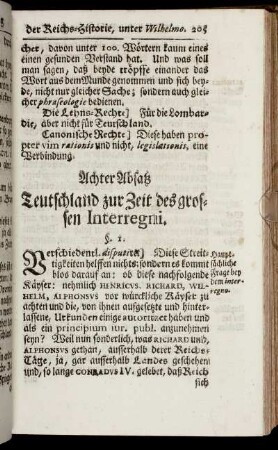 der Reichs-Historie, unter Wilhelmo. 205
cher, davon unter 100. Wörtern kaum eines
einen gesunden Verstand hat. Und was soll
man sagen, daß beyde tröpffe einander das
Wort aus dem Munde genommen und sich bey-
de, nicht nur gleicher Sache; sondern auch glei-
cher phraseologie bedienen.
Die Lehns-Rechte] Für die Lombar-
die, aber nicht für Teutschland.
Canonische Rechte] Diese haben pro-
pter vim rationis und nicht, legislationis, eine
Verbindung.
Achter Absatz
Teutschland zur Zeit des gros-
sen Interregni.
§. 1.
Verschiedentl. disputirt] Diese Streit-
tigkeiten helffen nichts: sondern es kommt
blos darauf an: ob diese nachfolgende
Käyser: nehmlich HENRICVS. RICHARD, WIL-
HELM, ALPHONSVS vor würckliche Käyser zu
achten und die, von ihnen aufgesetzte und hinter-
lassene, Urkunden einige autoritaet haben und
als ein principium iur. publ. anzunehmen
seyn? Weil nun sonderlich, was RICHARD und
ALPHONSVS gethan, ausserhalb derer Reichs-
Täge, ja, gar ausserhalb Landes geschehen
und, so lange CONRADVS IV. gelebet, daß Reich
sich
Haupt-
sächliche
Frage bey
dem inter-
regno.